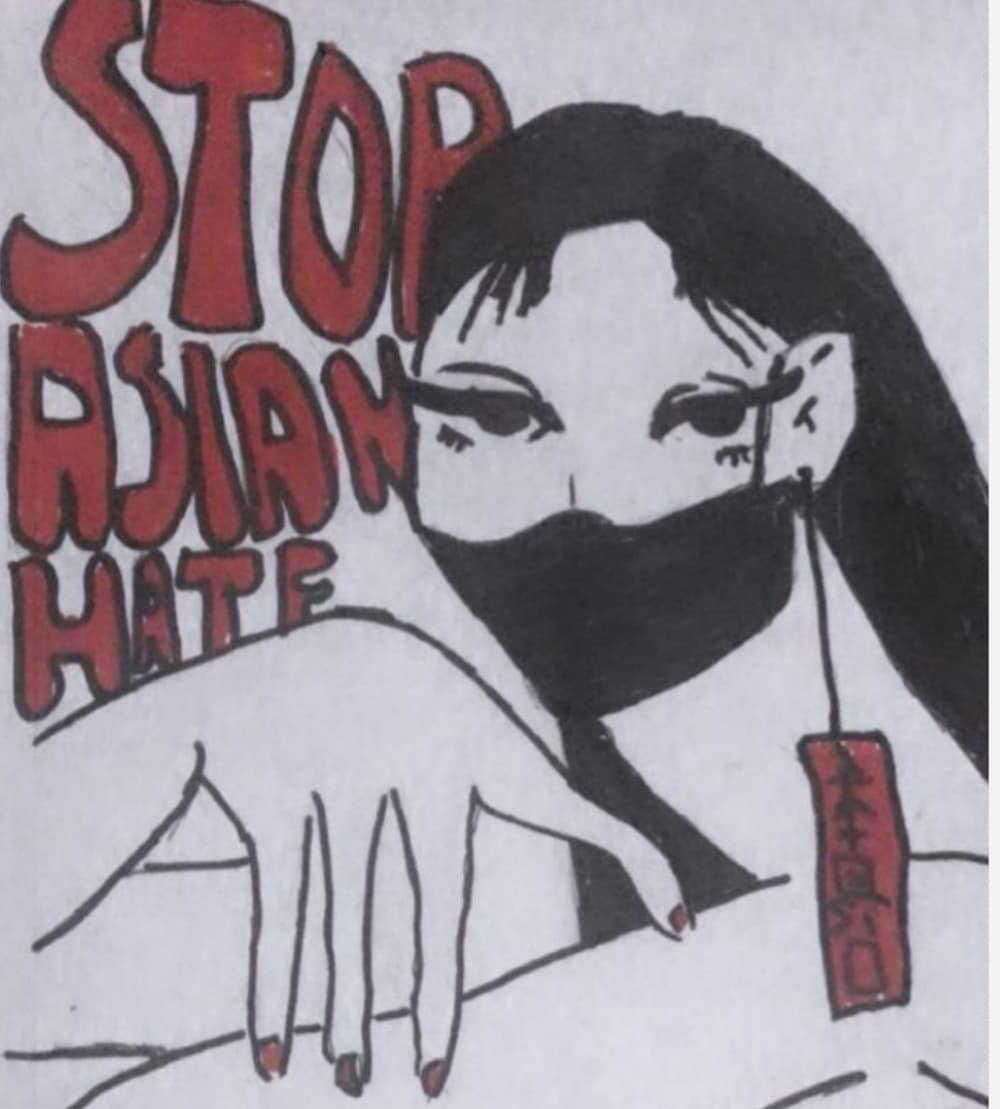 STOP
ASIAN
HATE